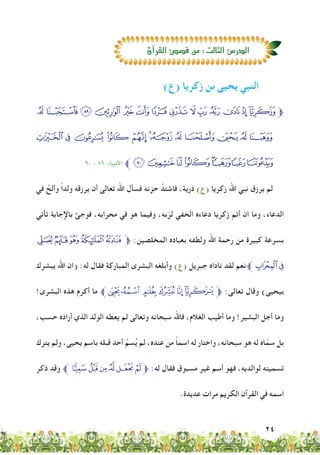 الدرس الثالث : من قصص القرآن
النبي يحيى بن زكريا (ع)
﴿ وَزَكَرِيَّا إِذْ نَادَى رَبَّهُ رَبِّ لَا تَذَرْنِي فَرْدًا وَأَنتَ خَيْرُ الْوَارِثِينَ ﴿٨٩﴾ فَاسْتَجَبْنَا لَهُ
وَوَهَبْنَا لَهُ يَحْيَى وَأَصْلَحْنَا لَهُ زَوْجَهُ إِنَّهُمْ كَانُوا يُسَارِعُونَ فِي الْخَيْرَاتِ
وَيَدْعُونَنَا رَغَبًا وَرَهَبًا وَكَانُوا لَنَا خَاشِعِينَ ﴿٩٠﴾ ﴾ الأنبياء ٨٩ - ٩٠
لم يرزق نبي الله زكريا (ع) ذرية، فاشتدّ حزنه فسأل الله تعالى أن يرزقه ولداً وألحّ في
الدعاء، وما ان أتم زكريا دعاءه الخفي لرّبه، وفيما هو في محرابه، فوجئ بالإجابة تأتي
بسرعة كبيرة من رحمة الله ولطفه بعباده المخلصين: ﴿ فَنَادَتْهُ الْمَلَائِكَةُ وَهُوَ قَائِمٌ يُصَلِّي
فِي الْمِحْرَابِ ﴾نعم لقد ناداه جبريل (ع) وأبلغه البشرى المباركة فقال له: (ان الله يبشرك
بيحيى) وقال تعالى: ﴿ يَا زَكَرِيَّا إِنَّا نُبَشِّرُكَ بِغُلَامٍ اسْمُهُ يَحْيَى ﴾ ما أكرم هذه البشرى!
وما أجل البشير! وما أطيب الغلام، فالله سبحانه وتعالى لم يعطه الولد الذي أراده حسب،
بل سمّاه له هو سبحانه، واختار له اسماً من عنده، لم يُسمَ أحد قبله باسم يحيى، ولم يترك
تسميته لوالديه، فهو أسم غير مسبوق فقال له: ﴿ لَمْ نَجْعَل لَّهُ مِن قَبْلُ سَمِيًّا ﴾ وقد ذكر
اسمه في القرآن الكريم مرات عديدة.
٢٤